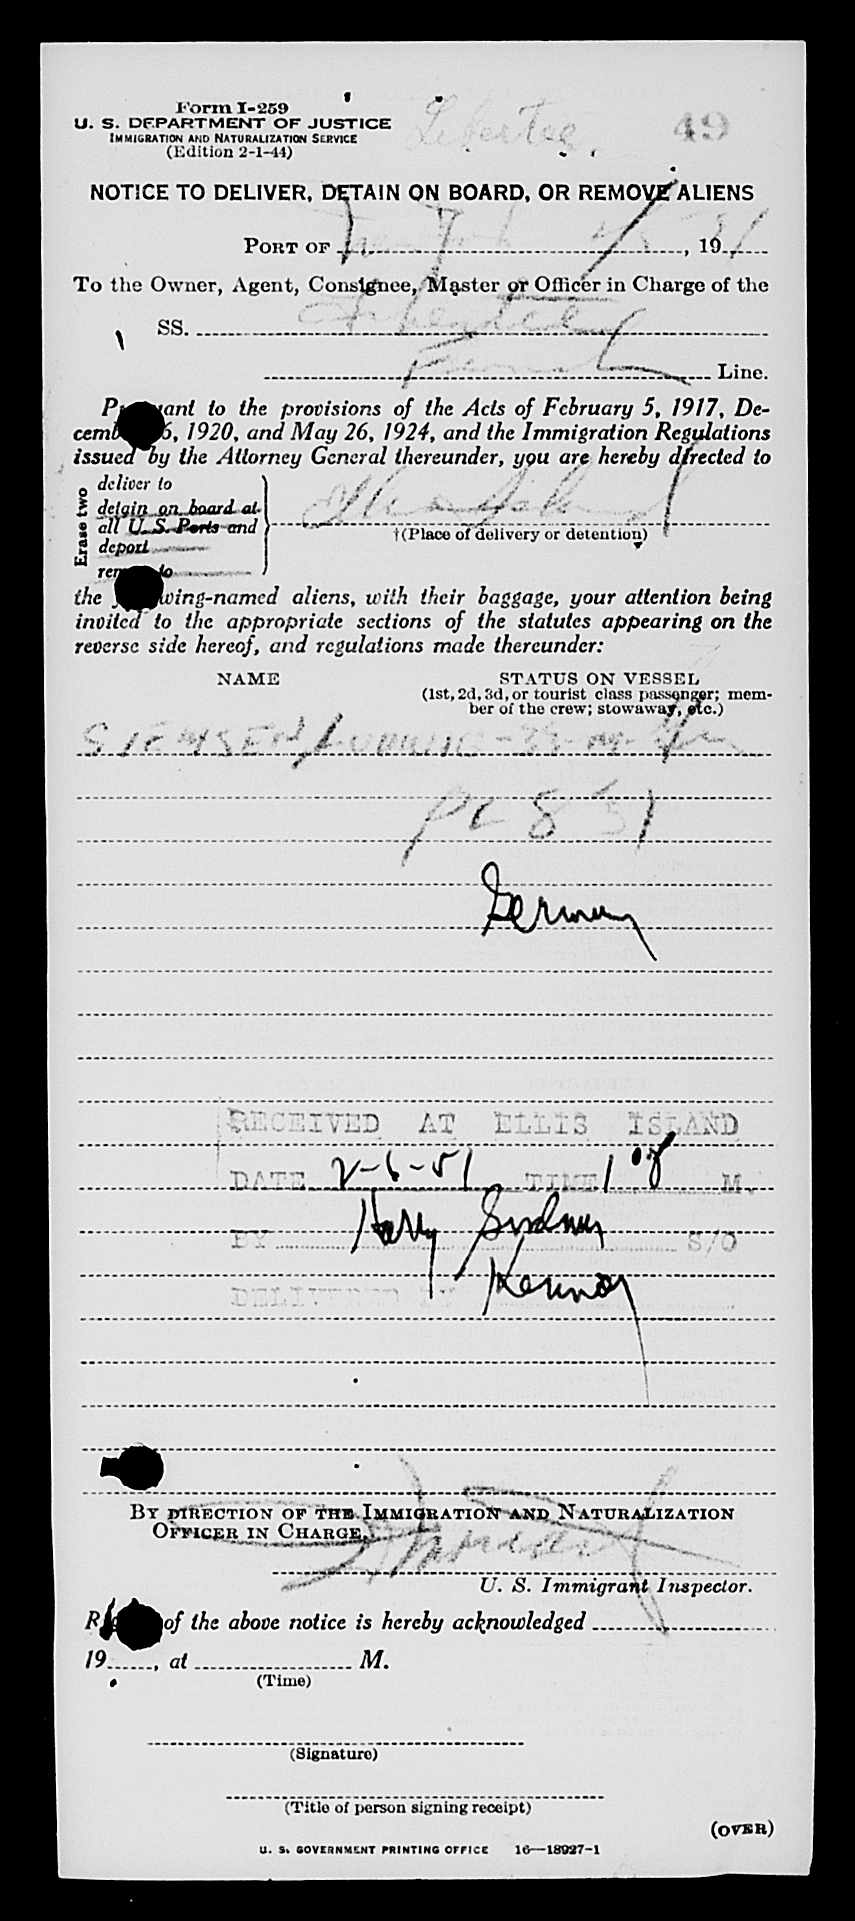 Form I-259
U. S. DEPARTMENT OF JUSTICE
IMMIGRATION AND NATURALIZATION SERVICE
(Edition 2-1-44)
Libertee
49
NOTICE TO DELIVER, DETAIN ON BOARD, OR REMOVE ALIENS
PORT OF New York, 19
To the Owner, Agent, Consignee, Master or Officer in Charge of the
SS. Libertee
French Line.
ant to the provisions of the Acts of February 5, 1917, De-
cemb 6, 1920, and May 26, 1924, and the Immigration Regulations
issued by the Attorney General thereunder, you are hereby directed to
Erase two
deliver to
detain on board at
all U. S. Ports and
deport
to
†(Place of delivery or detention)
the wing-named aliens, with their baggage, your attention being
invited to the appropriate sections of the statutes appearing on the
reverse side hereof, and regulations made thereunder:
NAME
STATUS ON VESSEL
(1st, 2d, 3d, or tourist class passenger; mem-
ber of the crew; stowaway, etc.)
SIEMSEN, LUDWIG
Germany
RECEIVED AT ELLIS ISLAND
DATE 2-6-51 TIME 1 M.
BY Harry S/O
DELIVERED BY
BY DIRECTION OF THE IMMIGRATION AND NATURALIZATION
OFFICER IN CHARGE.
U. S. Immigrant Inspector.
of the above notice is hereby acknowledged
19, at M.
(Time)
(Signature)
(Title of person signing receipt)
(OVER)
U. S. GOVERNMENT PRINTING OFFICE 16—18927-1